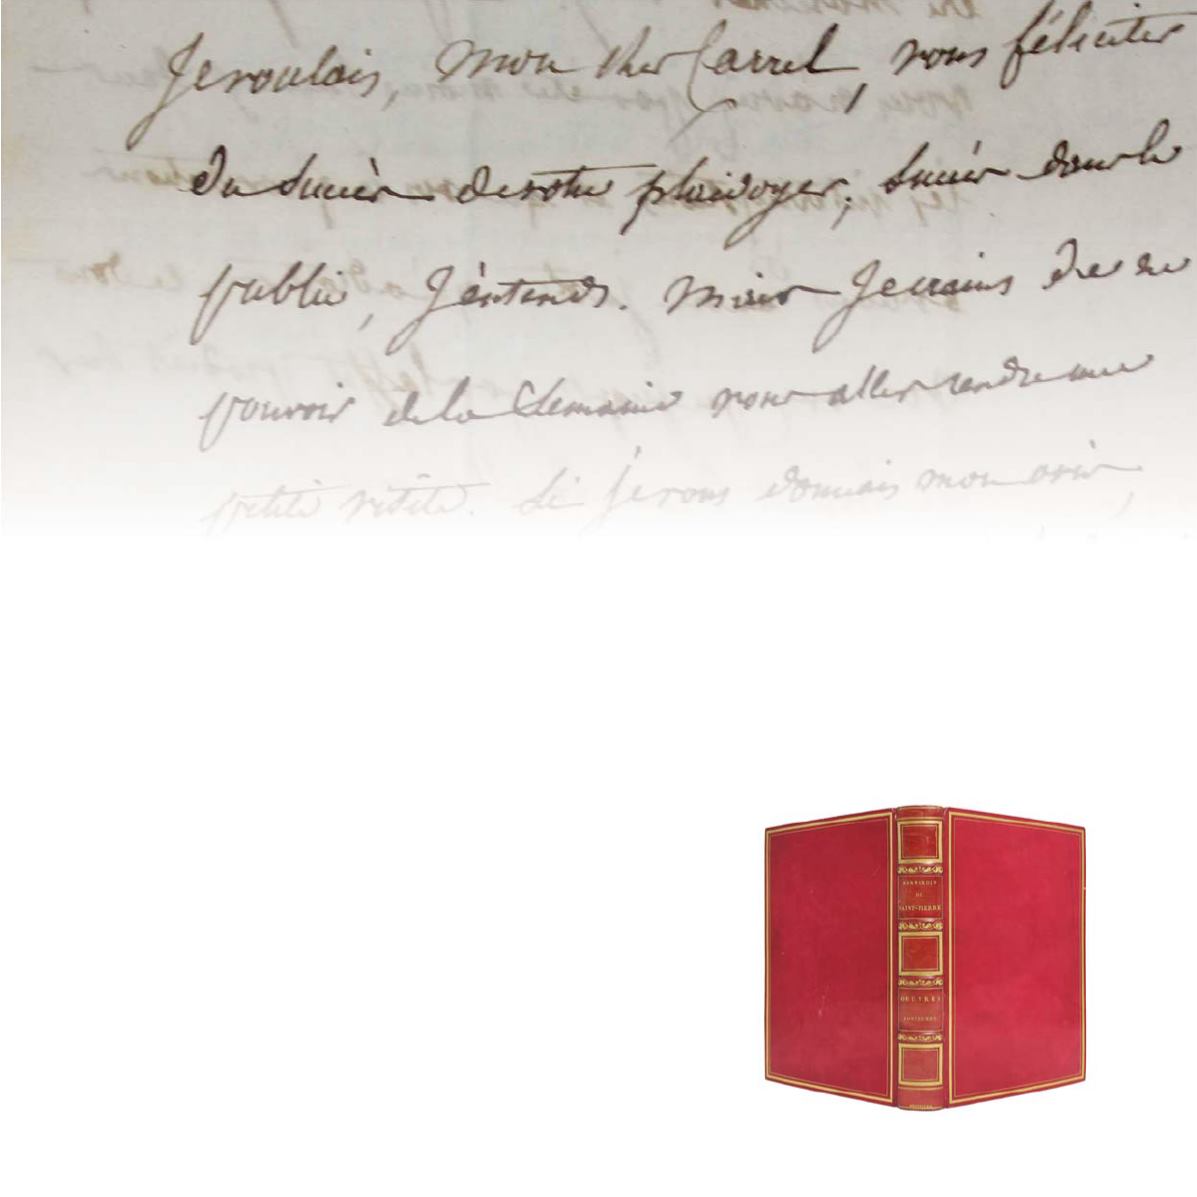 Je voulais, mon cher Carrel, vous féliciter
du succès de votre plaidoyer; succès dans le
public, j'entends. Mais je crains de ne
pouvoir de la semaine vous aller rendre une
petite visite. Si je vous donnais mon avis,
BERNARDIN
DE
SAINT-PIERRE
OEUVRES
POSTHUMES